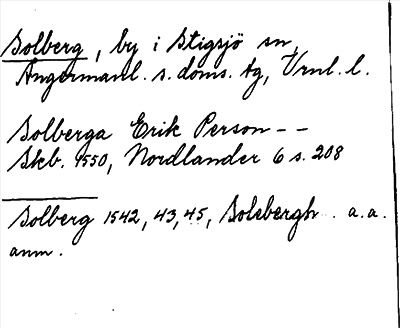 Solberg, by i Stigsjö sn,
Ångermanl. s. doms. tg, Vrnl. l.
Solberga Erik Person - -
Skb. 1550, Nordlander 6 s. 208
Solberg 1542, 43, 45, Solebergh . a.a.
anm.